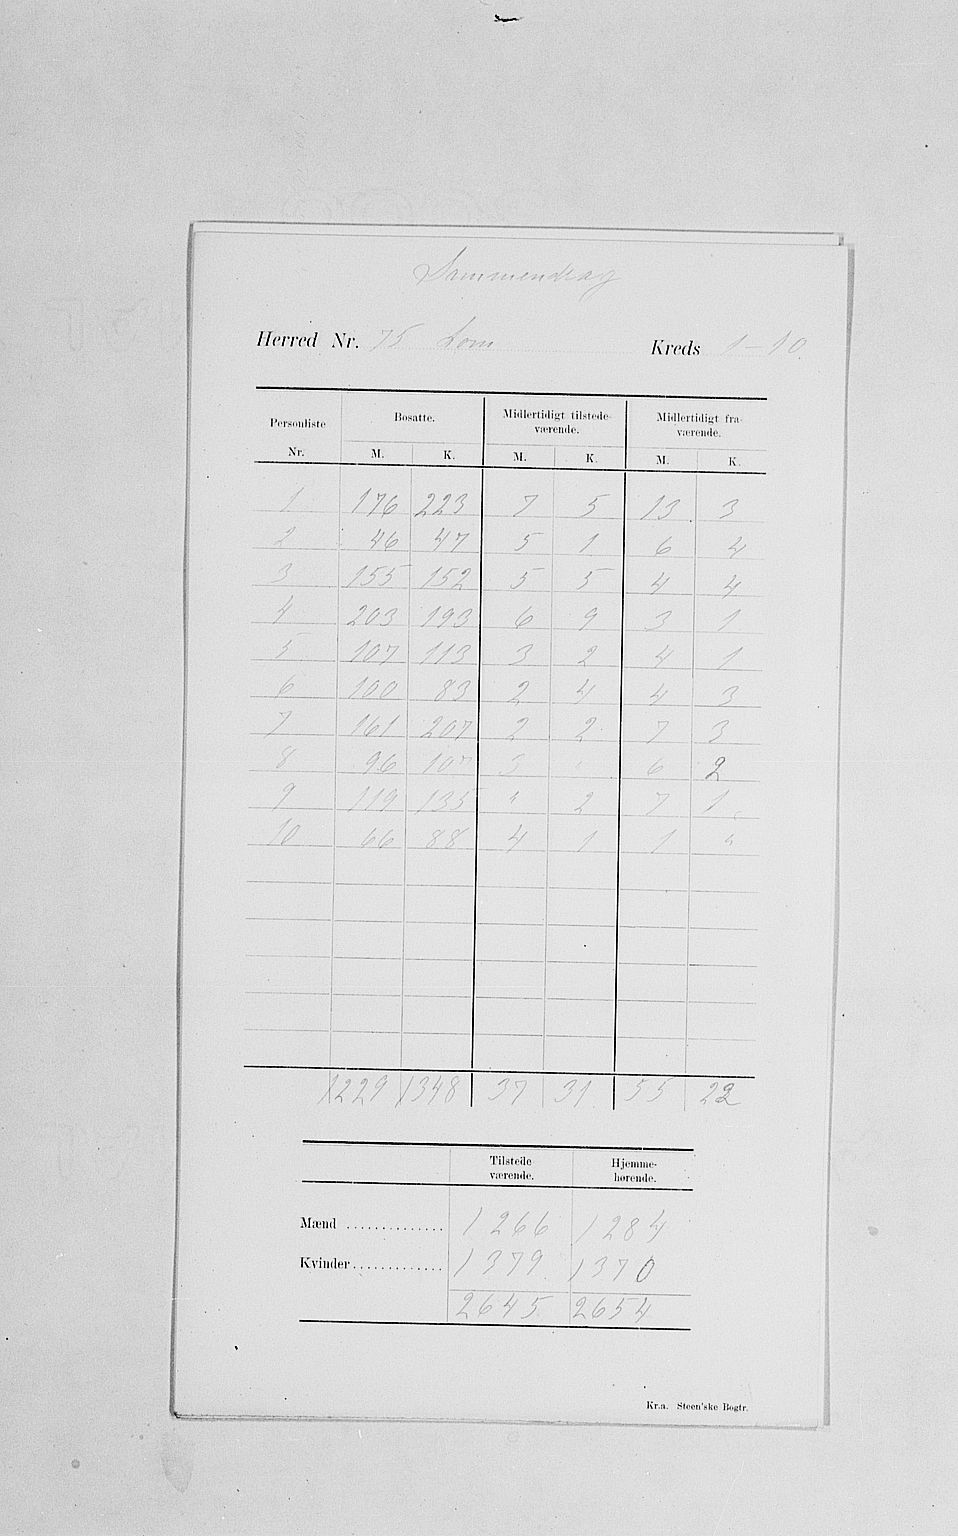 Sammendrag
Herred Nr. 75 Lom Kreds 1-10.
Personliste Nr. Bosatte. Midlertidigt tilstede-værende. Midlertidigt fra-værende.
M. K. M. K. M. K.
1 176 223 7 5 13 3
2 46 47 5 1 6 4
3 155 152 5 5 4 4
4 203 193 6 9 3 1
5 107 113 3 2 4 1
6 100 83 2 4 4 3
7 161 207 2 2 7 3
8 96 107 3 " 6 2
9 119 135 " 2 7 1
10 66 88 4 1 1 "
1229 1348 37 31 55 22
Tilstede værende. Hjemme-hørende.
Mænd .............. 1266 1284
Kvinder ............. 1379 1370
2645 2654
Kr.a. Steen'ske Bogtr.